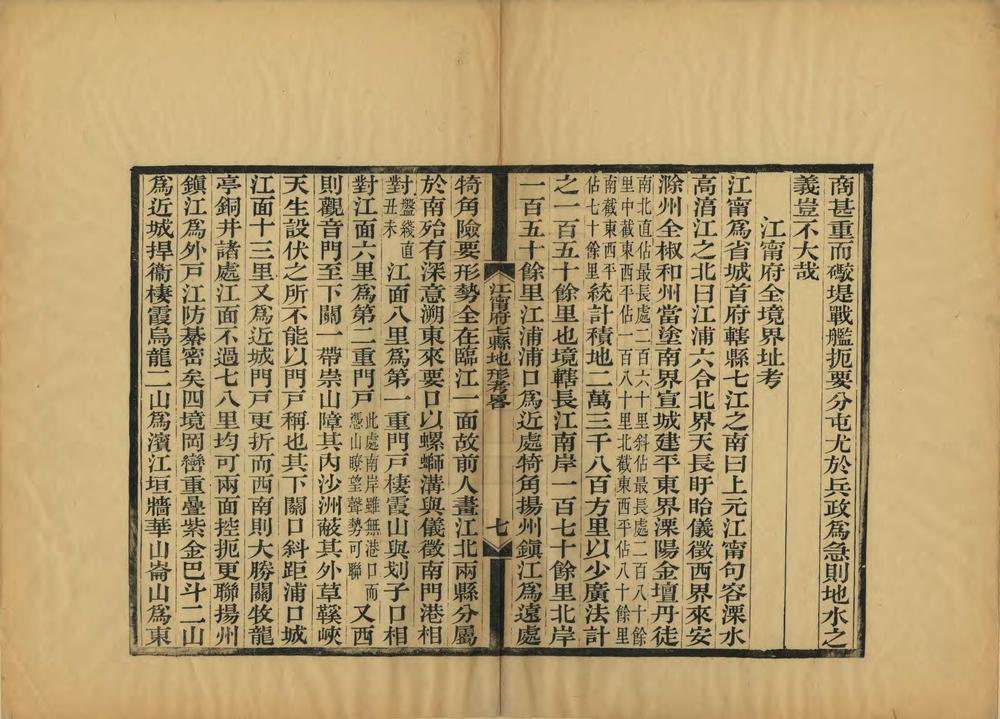 商甚重而礮堤戰艦扼要分屯尤於兵政爲急則地水之
義豈不大哉
江甯府全境界址考
江甯爲省城首府轄縣七江之南曰上元江甯句容溧水
高淯江之北曰江浦六合北界天長盱眙儀徵西界來安
滁州全椒和州當塗南界宣城建平東界溧陽金壇丹徒
南北直佔最長處二百六十里斜佔最長處二百八十餘
里中截東西平佔一百八十里北截東西平佔八十餘里
南截東西平
佔七十餘里統計積地二萬三千八百方里以少廣法計
之一百五十餘里也境轄長江南岸一百七十餘里北岸
一百五十餘里江浦浦口爲近處犄角揚州鎭江爲遠處
江甯府七縣地形考畧
七
犄角險要形勢全在臨江一面故前人畫江北兩縣分屬
於南殆有深意溯東來要口以螺螄溝與儀徵南門港相
對盤綫直
丑未江面八里爲第一重門戸棲霞山與划子口相
對江面六里爲第二重門戸此處南岸雖無港口而
憑山瞭望聲勢可聯又西
則觀音門至下關一帶崇山障其內沙洲蔽其外草鞵峽
天生設伏之所不能以門戸稱也其下關口斜距浦口城
江面十三里又爲近城門戸更折而西南則大勝關牧龍
亭銅井諸處江面不過七八里均可兩面控扼更聯揚州
鎭江爲外戸江防綦密矣四境岡巒重疊紫金巴斗二山
爲近城捍衞棲霞烏龍二山爲濱江垣牆華山崙山爲東